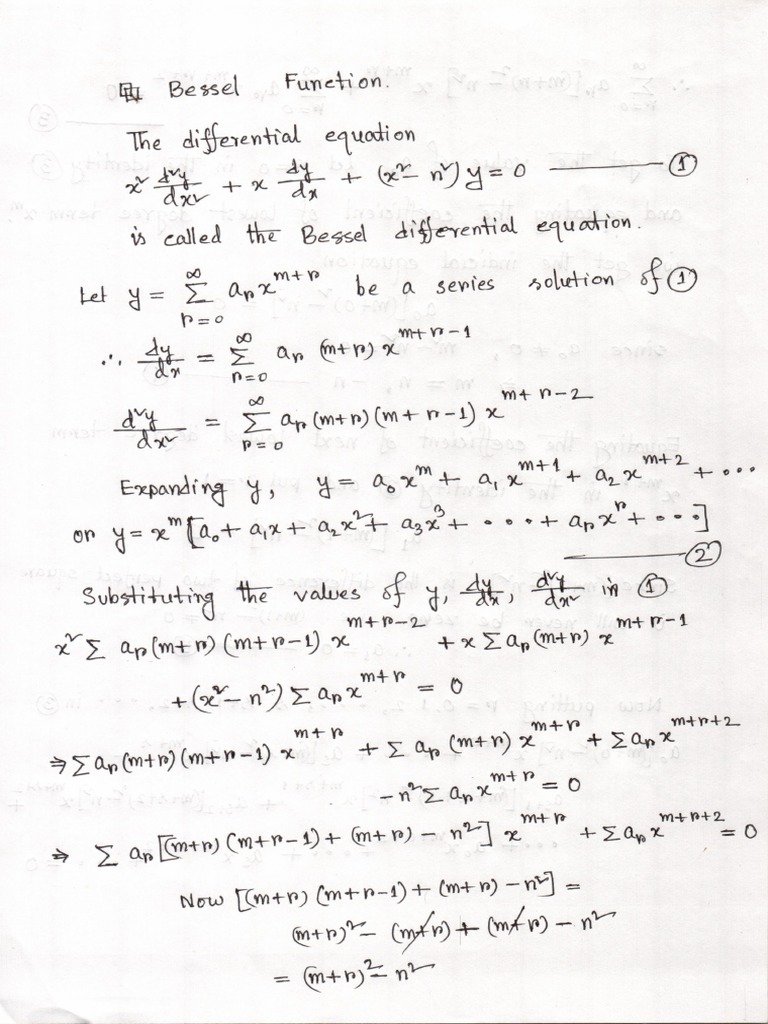 Bessel Function.
The differential equation
x² d²y/dx² + x dy/dx + (x² - n²) y = 0 ——— ①
is called the Bessel differential equation.
Let y = ∞ Σ r=0 aᵣ x^(m+r) be a series solution of ①
∴ dy/dx = ∞ Σ r=0 aᵣ (m+r) x^(m+r-1)
d²y/dx² = ∞ Σ r=0 aᵣ (m+r) (m+r-1) x^(m+r-2)
Expanding y, y = a₀x^m + a₁x^(m+1) + a₂x^(m+2) + ...
or y = x^m [a₀ + a₁x + a₂x² + a₃x³ + .... + aᵣx^r + ...]
——— ②
Substituting the values of y, dy/dx, d²y/dx² in ①
x² Σ aᵣ(m+r) (m+r-1) x^(m+r-2) + x Σ aᵣ(m+r) x^(m+r-1)
+ (x² - n²) Σ aᵣx^(m+r) = 0
⇒ Σ aᵣ(m+r) (m+r-1) x^(m+r) + Σ aᵣ (m+r) x^(m+r) + Σ aᵣx^(m+r+2)
- n² Σ aᵣx^(m+r) = 0
⇒ Σ aᵣ [(m+r) (m+r-1) + (m+r) - n²] x^(m+r) + Σ aᵣx^(m+r+2) = 0
Now [(m+r) (m+r-1) + (m+r) - n²] =
(m+r)² - (m+r) + (m+r) - n²
= (m+r)² - n²